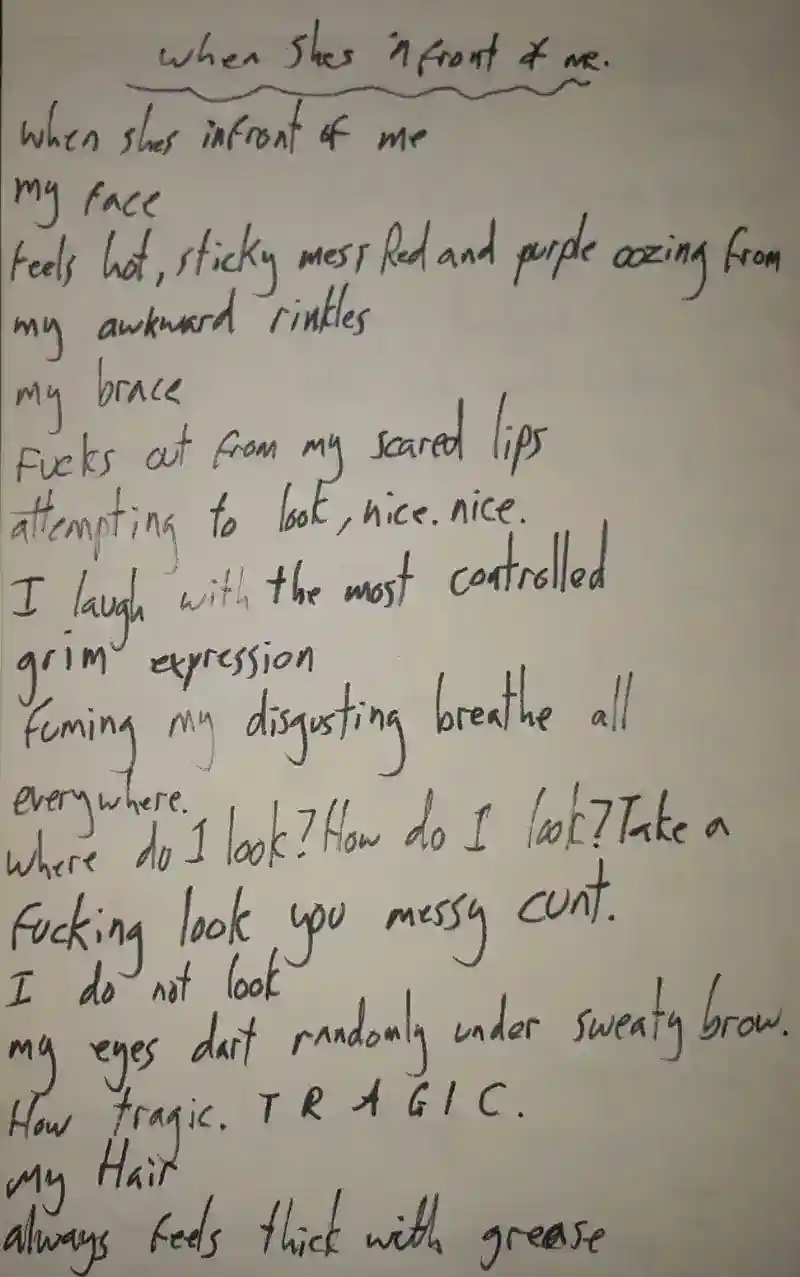 when shes in front of me.
when shes infront of me
my face
feels hot, sticky mess Red and purple oozing from
my awkward rinkles
my brace
Fucks out from my scared lips
attempting to look, nice. nice.
I laugh with the most controlled
grim expression
fuming my disgusting breathe all
everywhere.
where do I look? How do I look? Take a
fucking look you messy cunt.
I do not look
my eyes dart randomly under sweaty brow.
How tragic. T R A G I C.
my Hair
always feels thick with grease